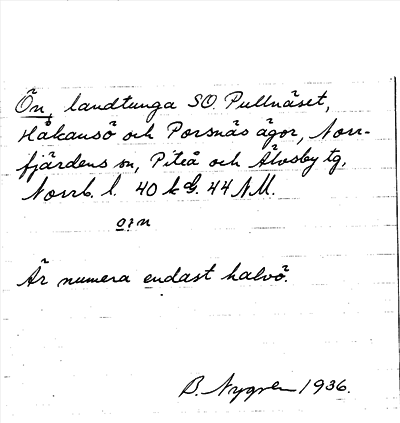 Ön, landtunga SO. Pullnäset,
Håkansö och Porsnäs ägor, Norr-
fjärdens sn, Piteå och Älvsby tg,
Norrb. l. 40 k G. 44 NM.
Är numera endast halvö.
B. Nygren 1936.